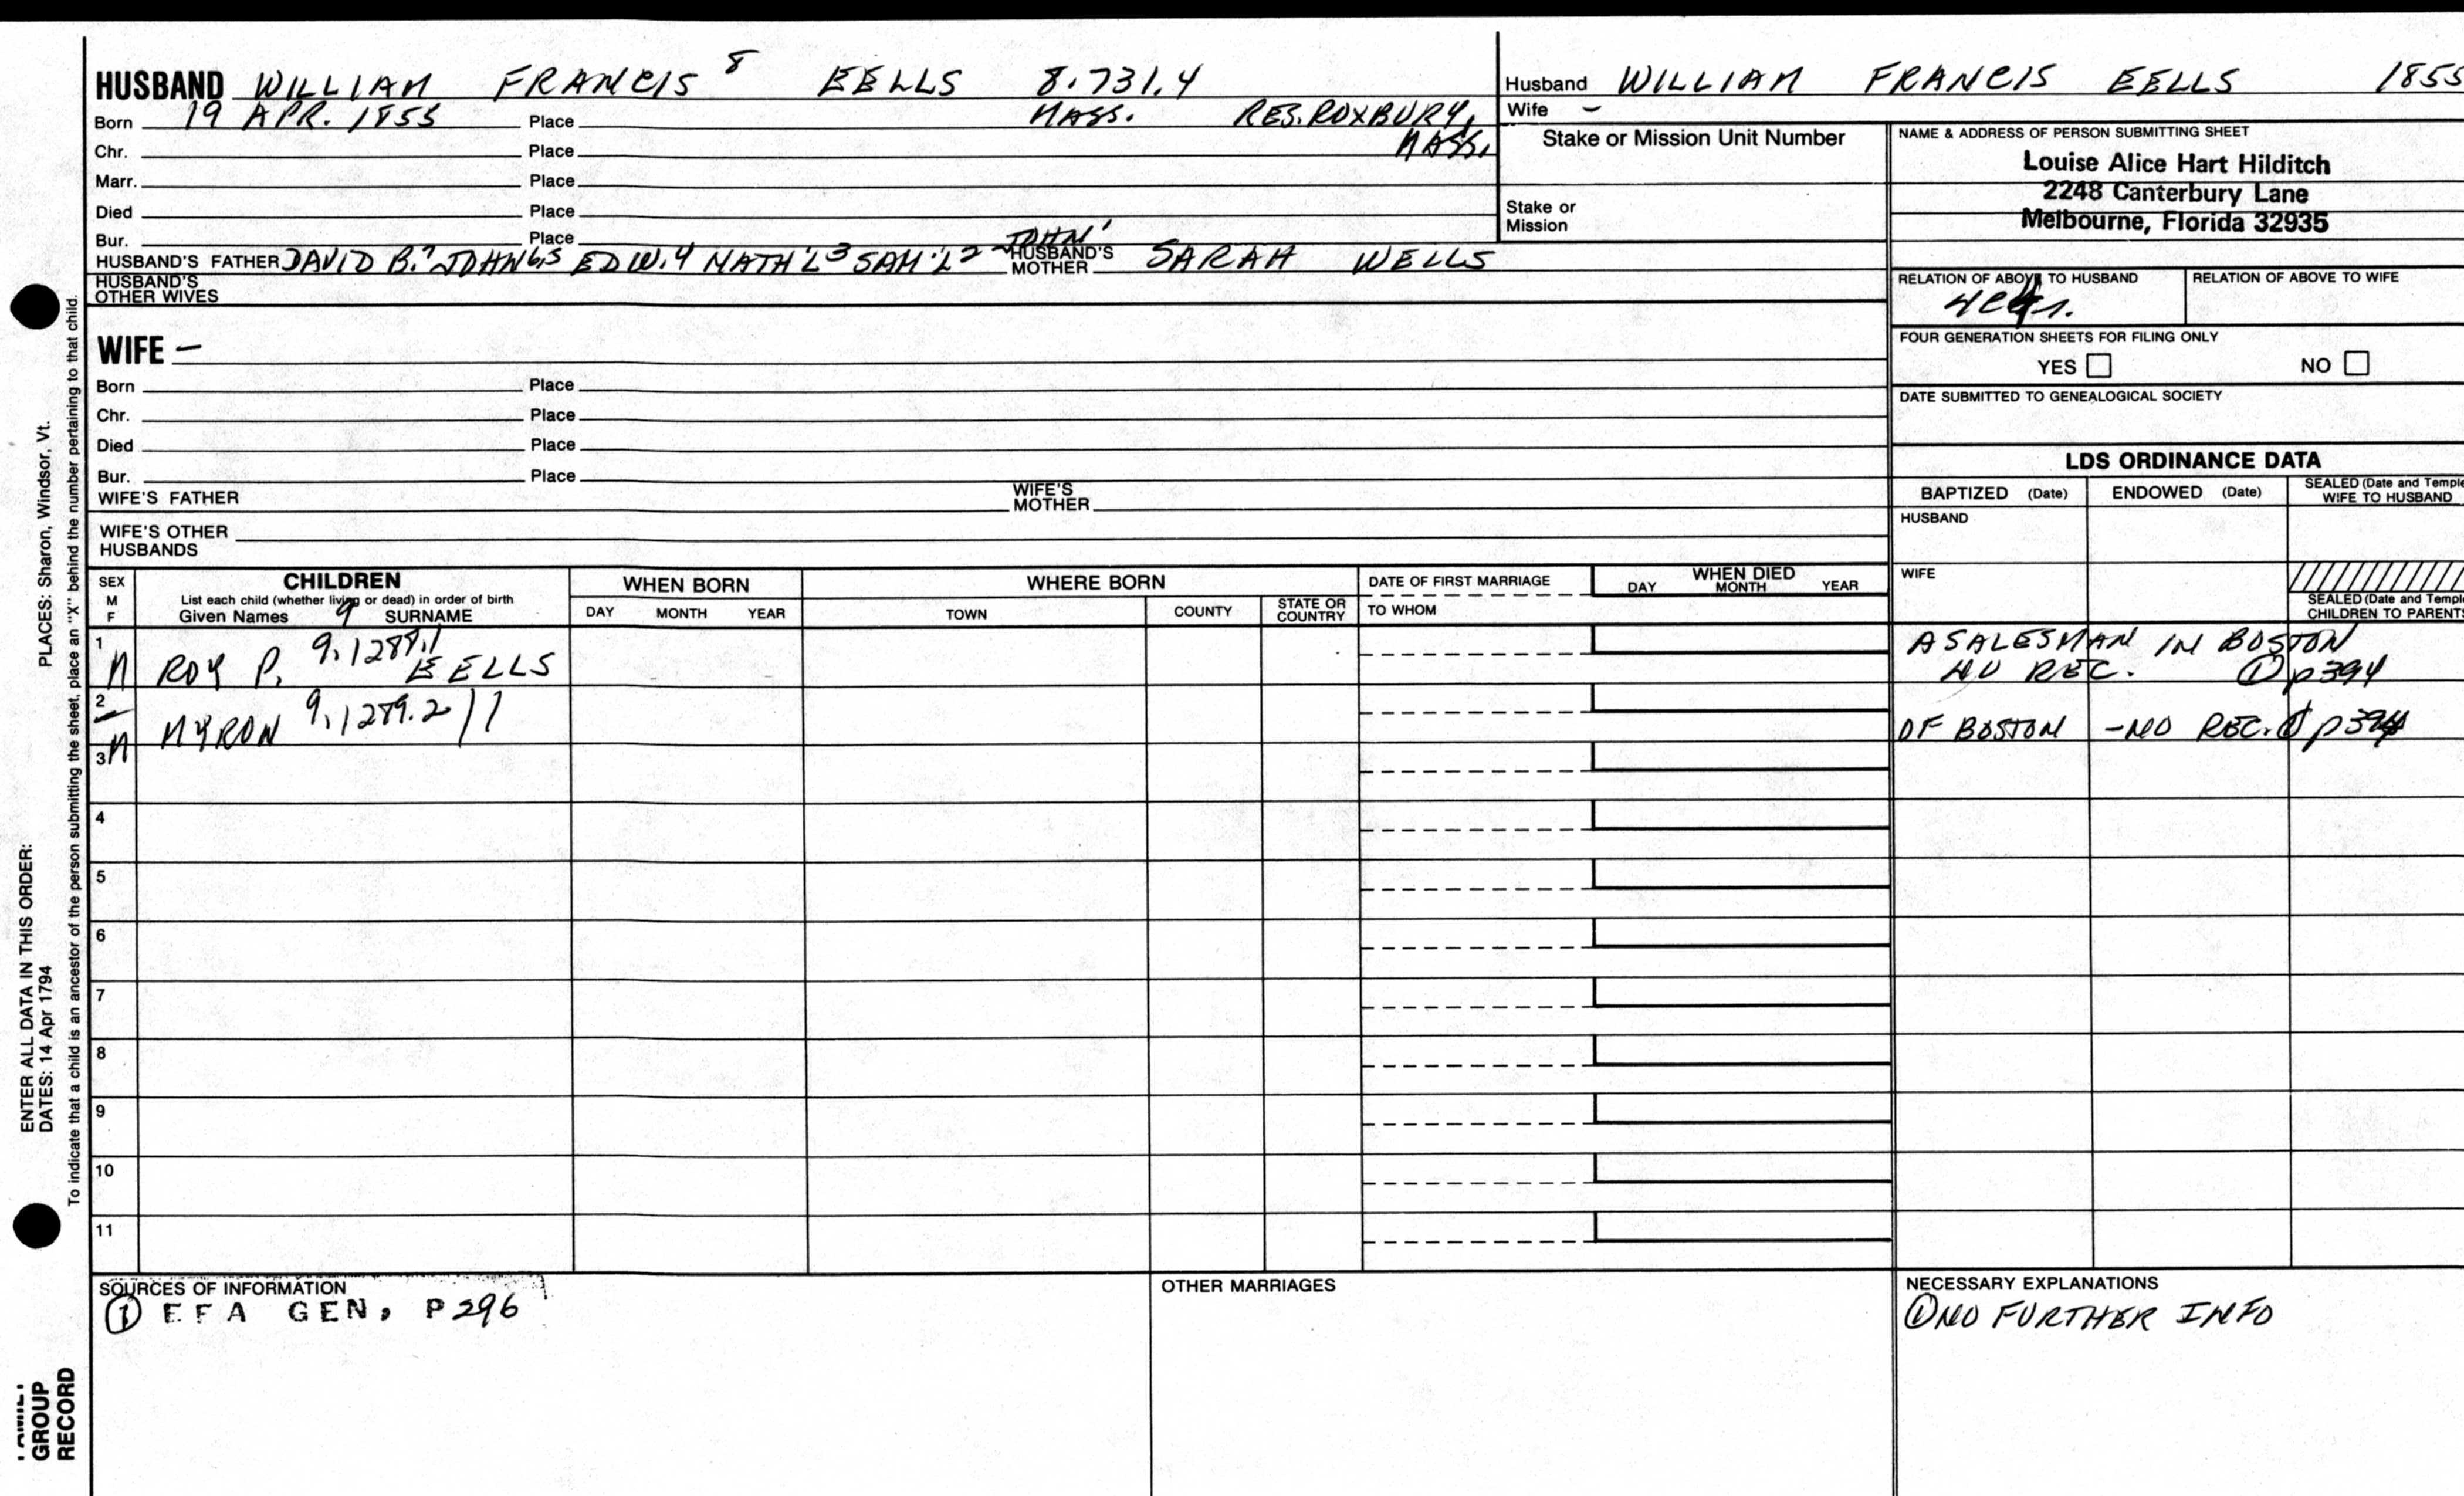 HUSBAND WILLIAM FRANCIS 8 EELLS 8.731.4
Born 19 APR. 1855 Place MASS. RES. ROXBURY, MASS.
Chr. Place
Marr. Place
Died Place
Bur. Place
HUSBAND'S FATHER DAVID B.7 JOHN 6,5 EDW.4 NATH'L3 SAM'L2 JOHN1 HUSBAND'S MOTHER SARAH WELLS
HUSBAND'S OTHER WIVES
WIFE –
Born Place
Chr. Place
Died Place
Bur. Place
WIFE'S FATHER WIFE'S MOTHER
WIFE'S OTHER HUSBANDS
Husband WILLIAM FRANCIS EELLS 1855
Wife –
Stake or Mission Unit Number
Stake or Mission
NAME & ADDRESS OF PERSON SUBMITTING SHEET
Louise Alice Hart Hilditch
2248 Canterbury Lane
Melbourne, Florida 32935
RELATION OF ABOVE TO HUSBAND RELATION OF ABOVE TO WIFE
FOUR GENERATION SHEETS FOR FILING ONLY
YES NO
DATE SUBMITTED TO GENEALOGICAL SOCIETY
LDS ORDINANCE DATA
BAPTIZED (Date) ENDOWED (Date) SEALED (Date and Temple WIFE TO HUSBAND
HUSBAND
WIFE
SEALED (Date and Templ CHILDREN TO PARENTS
SEX M F
CHILDREN
List each child (whether living or dead) in order of birth
Given Names 9 SURNAME
WHEN BORN
DAY MONTH YEAR
WHERE BORN
TOWN COUNTY STATE OR COUNTRY
DATE OF FIRST MARRIAGE
TO WHOM
WHEN DIED
DAY MONTH YEAR
1 M ROY P. 9.1289.1 EELLS
A SALESMAN IN BOSTON
NO REC. ① p394
2 M MYRON 9.1289.2 11
OF BOSTON -NO REC. ① p394
3
4
5
6
7
8
9
10
11
SOURCES OF INFORMATION
① EFA GEN, P296
OTHER MARRIAGES
NECESSARY EXPLANATIONS
① NO FURTHER INFO
PLACES: Sharon, Windsor, Vt.
ENTER ALL DATA IN THIS ORDER:
DATES: 14 Apr 1794
To indicate that a child is an ancestor of the person submitting the sheet, place an "X" behind the number pertaining to that child.
FAMILY
GROUP
RECORD